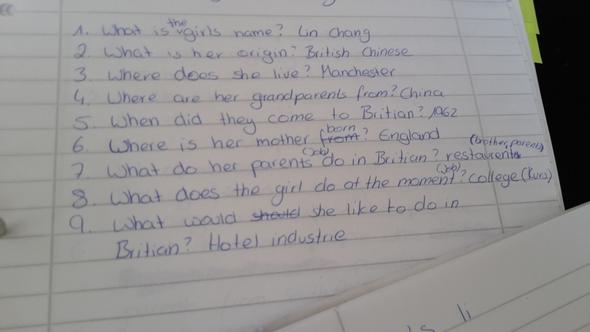 1. What is the girls name? Lin Chang
2. What is her origin? British Chinese
3. Where does she live? Manchester
4. Where are her grandparents from? China
5. When did they come to Britian? 1962
6. Where is her mother from born? England
7. What do her parents (job) do in Britian? restaurants (brother, parents)
8. What does the girl do at the moment (job)? college (Kurs)
9. What would should she like to do in
Britian? Hotel industrie